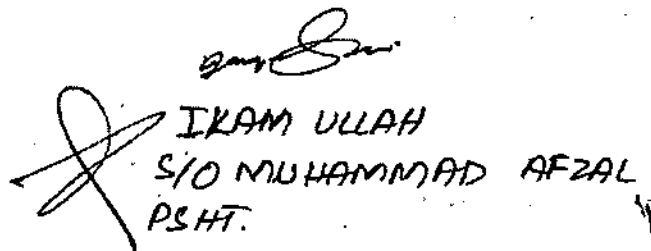 IKAM ULLAH
S/O MUHAMMAD AFZAL
PSHT.